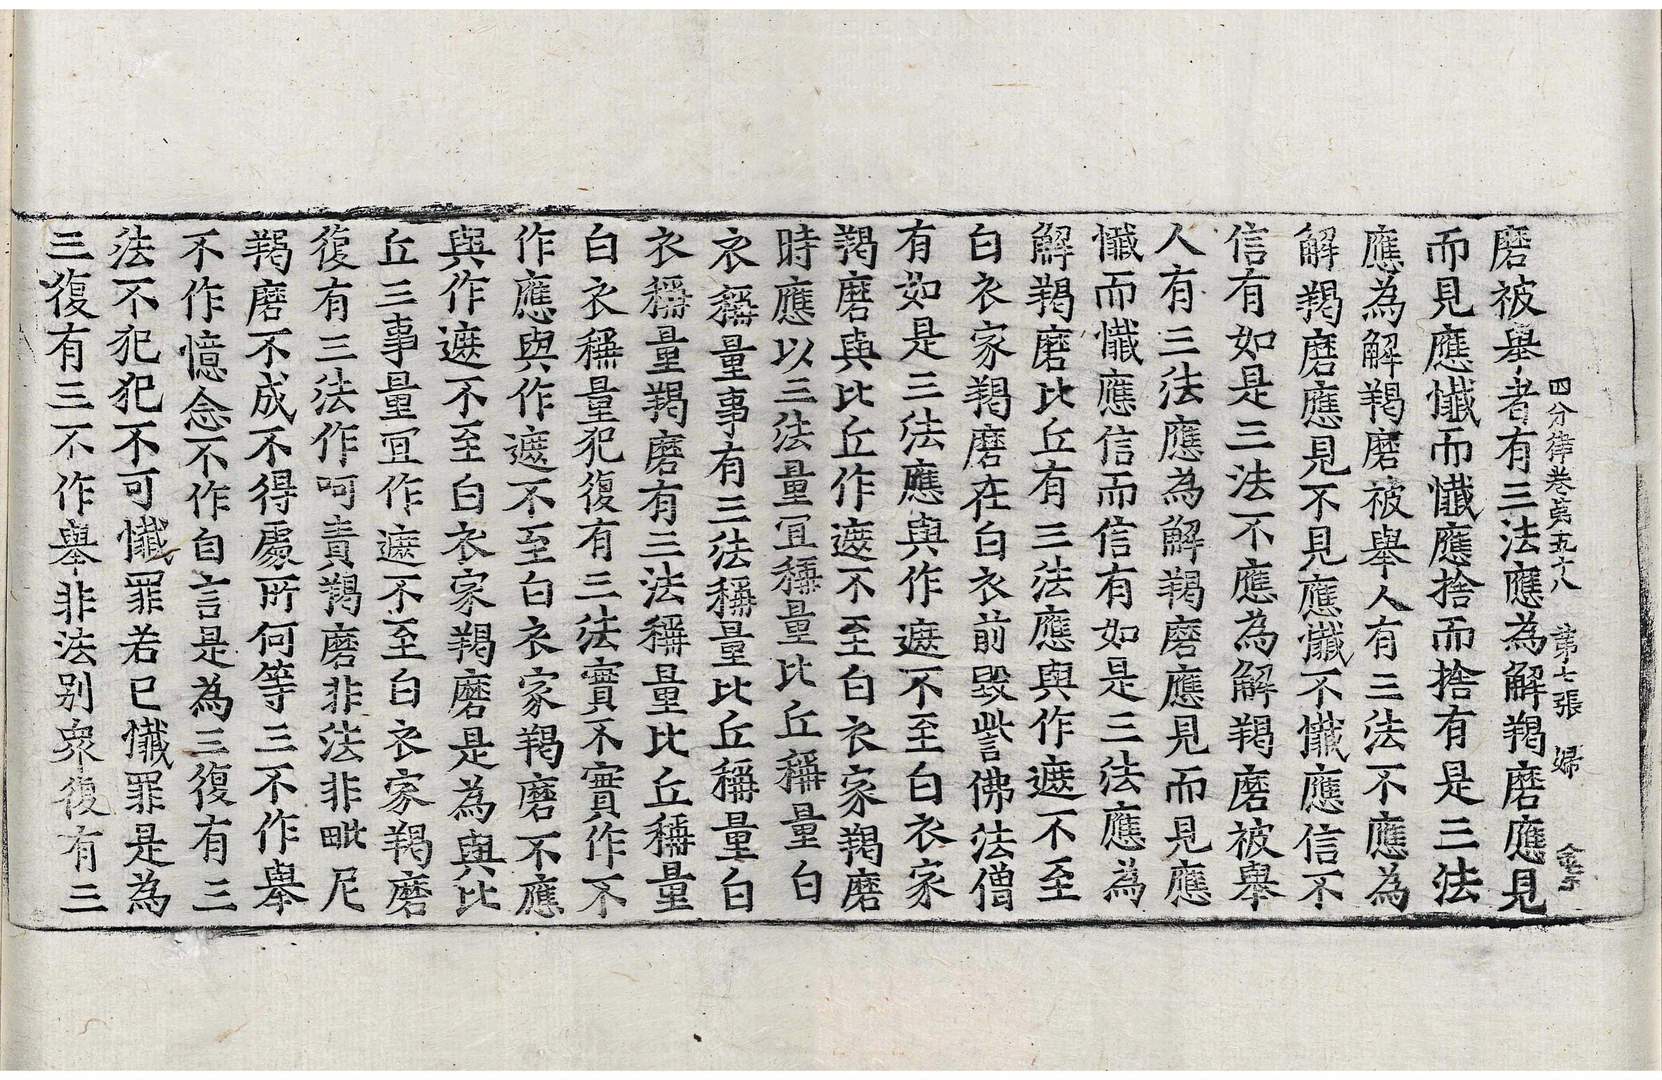 四分律卷第五十八 第七張 婦
磨被舉者有三法應為解羯磨應見
而見應懺而懺應捨而捨有是三法
應為解羯磨被舉人有三法不應為
解羯磨應見不見應懺不懺應信不
信有如是三法不應為解羯磨被舉
人有三法應為解羯磨應見而見應
懺而懺應信而信有如是三法應為
解羯磨比丘有三法應與作遮不至
白衣家羯磨在白衣前毀訾佛法僧
有如是三法應與作遮不至白衣家
羯磨與比丘作遮不至白衣家羯磨
時應以三法量冝稱量比丘稱量白
衣稱量事有三法稱量比丘稱量白
衣稱量羯磨有三法稱量比丘稱量
白衣稱量犯復有三法實不實作不
作應與作遮不至白衣家羯磨不應
與作遮不至白衣家羯磨是為與比
丘三事量冝作遮不至白衣家羯磨
復有三法作呵責羯磨非法非毗尼
羯磨不成不得處所何等三不作舉
不作憶念不作自言是為三復有三
法不犯犯不可懺罪若已懺罪是為
三復有三不作舉非法別眾復有三